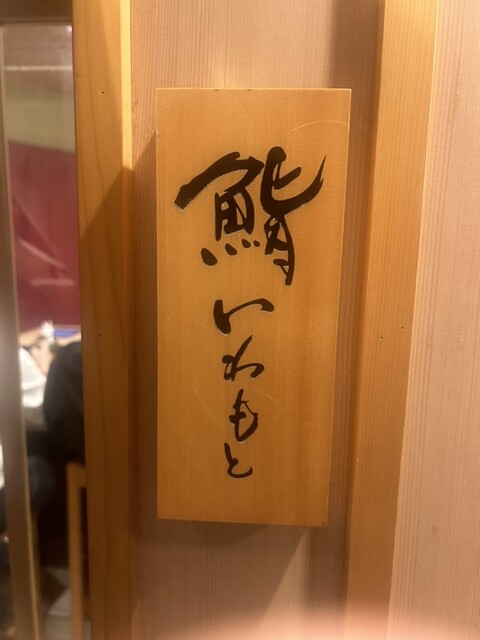 鮨いわもと